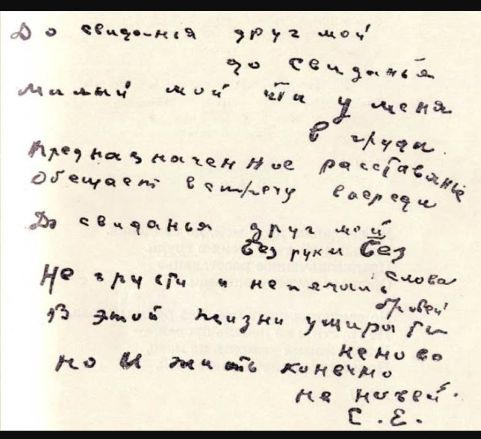 До свиданья друг мой
до свиданья
Милый мой ты у меня
в груди.
Предназначенное расставанье
Обещает встречу впереди
До свиданья друг мой
без руки без
слова
Не грусти и не печаль
бровей
В этой жизни умирать
не ново
но и жить конечно
не новей.
С. Е.